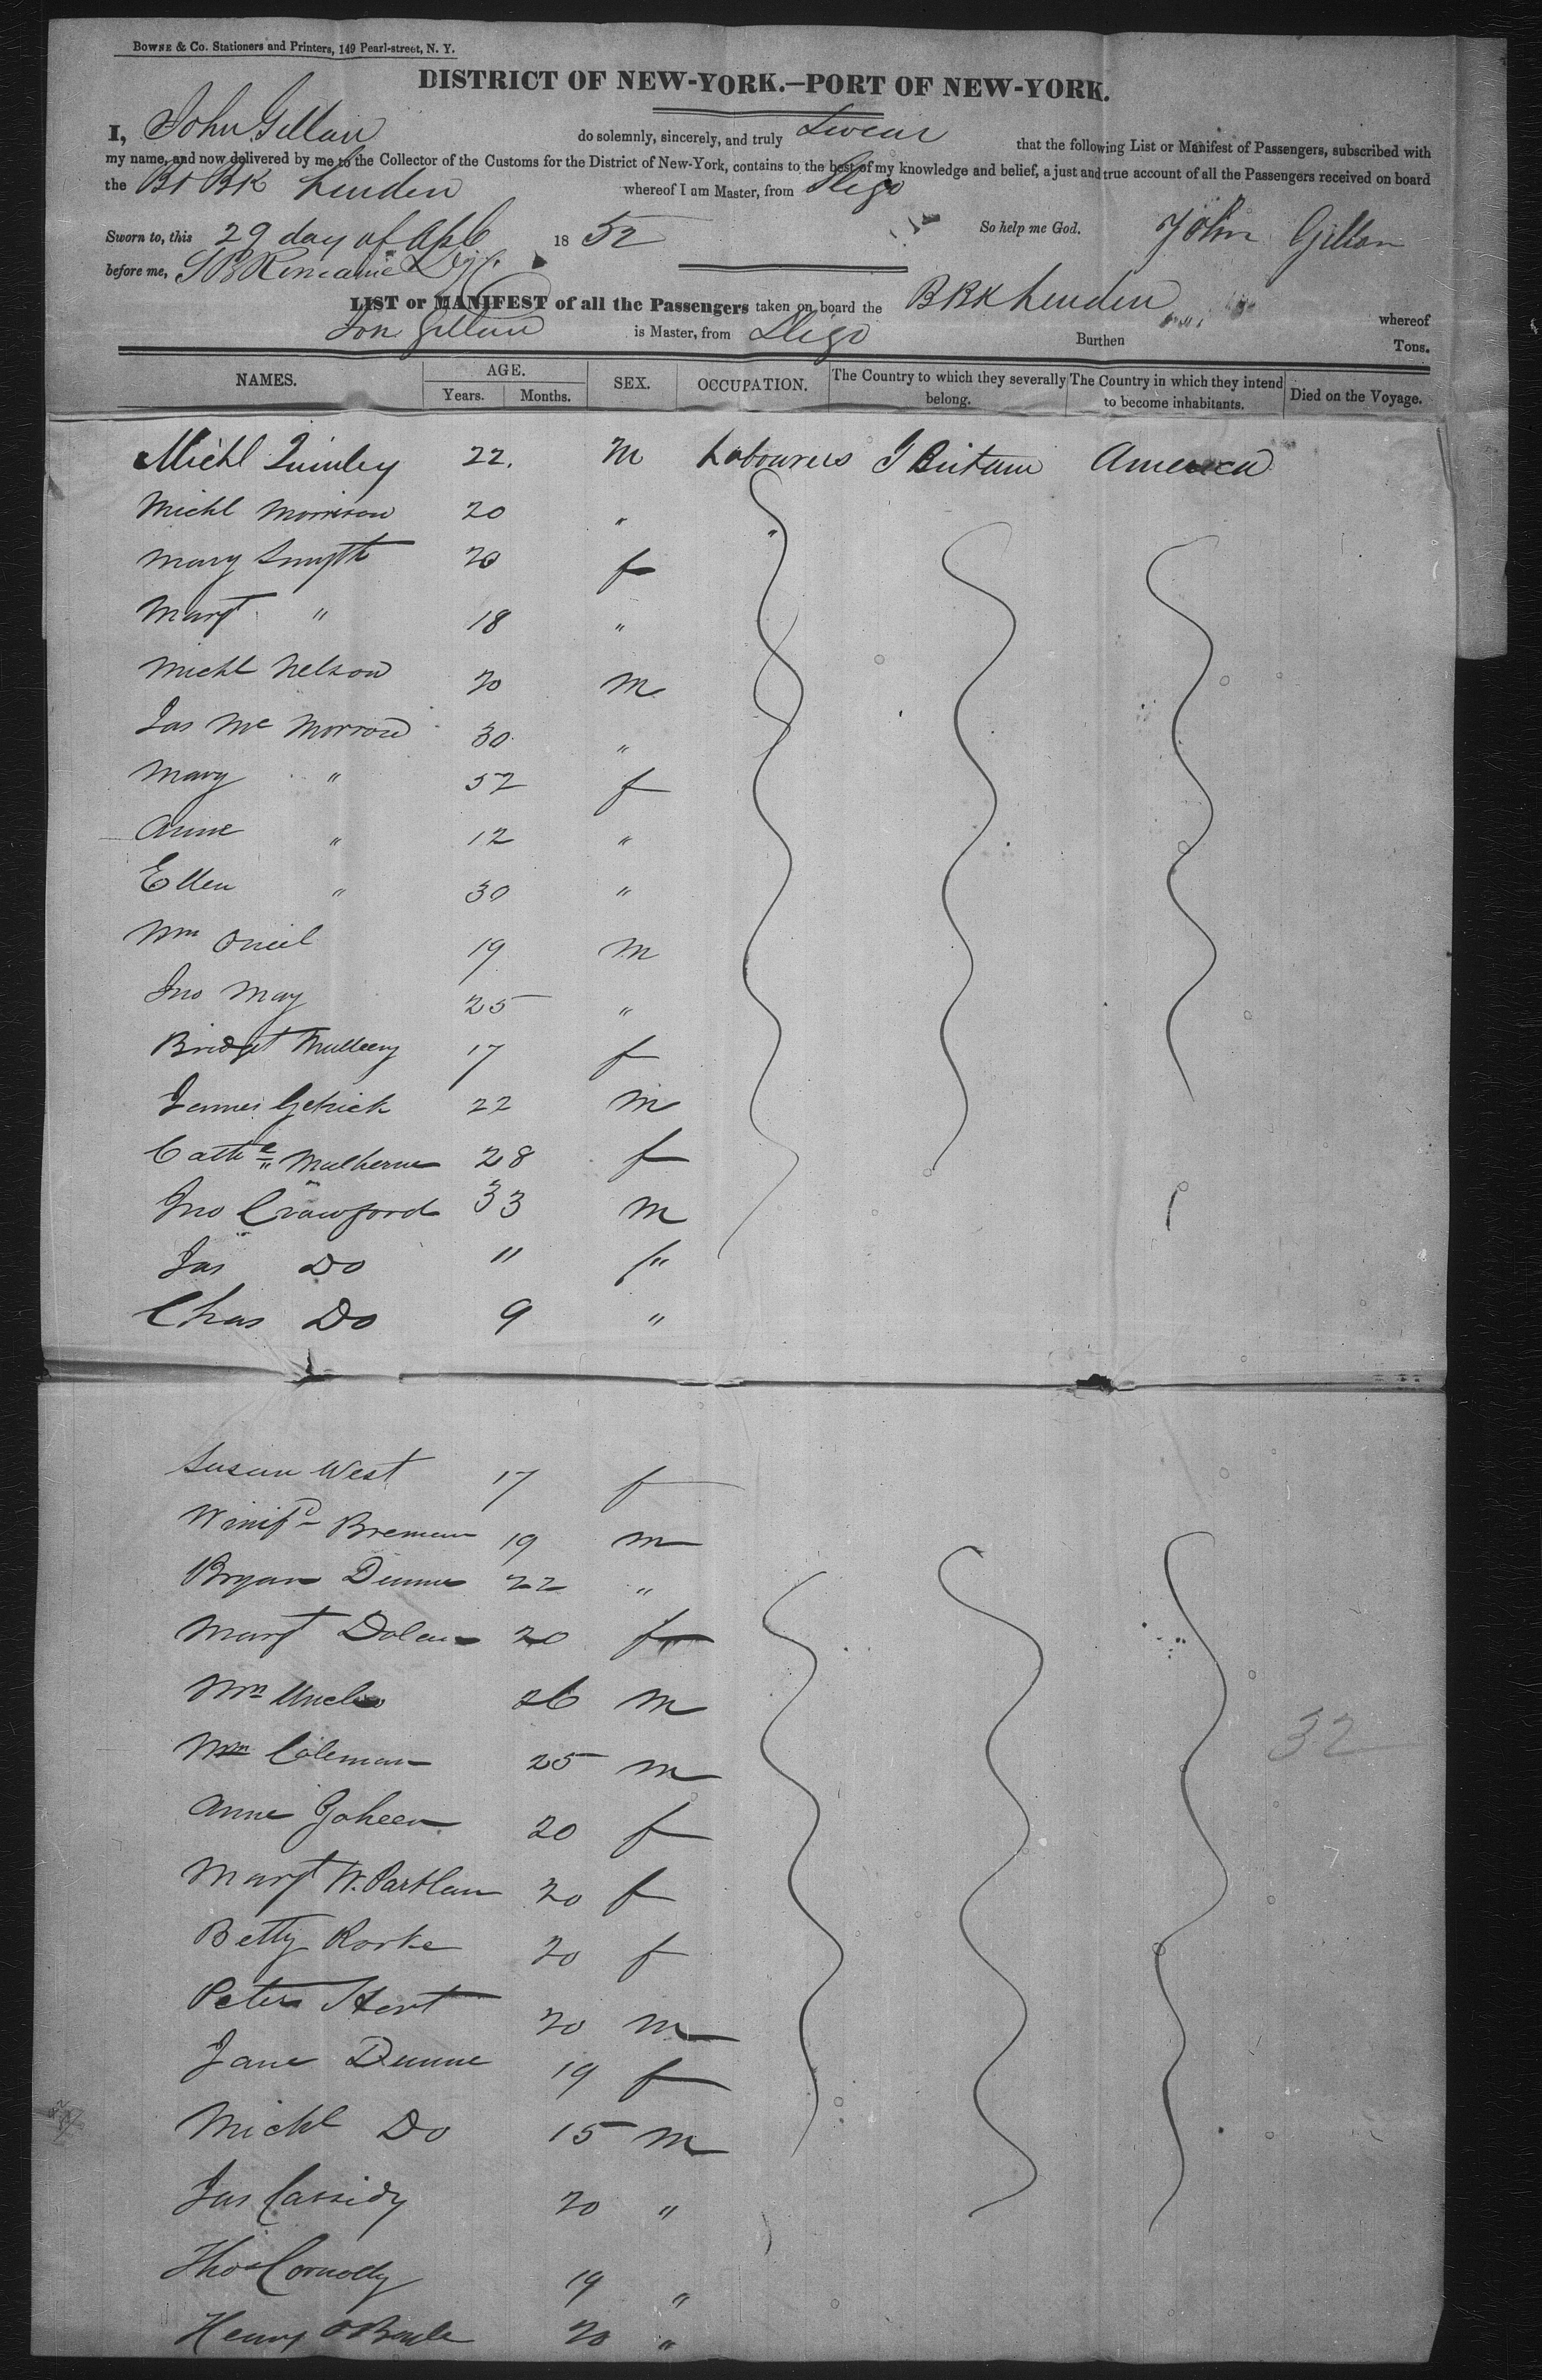 BOWNE & Co. Stationers and Printers, 149 Pearl-street, N. Y.
DISTRICT OF NEW-YORK.—PORT OF NEW-YORK.
I, John Gillan do solemnly, sincerely, and truly Swear that the following List or Manifest of Passengers, subscribed with
my name, and now delivered by me to the Collector of the Customs for the District of New-York, contains to the best of my knowledge and belief, a just and true account of all the Passengers received on board
the Br Bk Linden whereof I am Master, from Sligo
Sworn to, this 29 day of Apl 1852 So help me God. John Gillan
before me,
LIST or MANIFEST of all the Passengers taken on board the BRK Linden whereof
Jon Gillan is Master, from Sligo Burthen Tons.
NAMES. AGE. Years. Months. SEX. OCCUPATION. The Country to which they severally belong. The Country in which they intend to become inhabitants. Died on the Voyage.
Michl Quinley 22. M Labourers G Britain America
Michl Morrison 20 " "
Mary Smyth 20 f
Margt " 18 "
Michl Nelson 20 M
Jas Mc Morrow 30 "
Mary " 52 f
Anne " 12 "
Ellen " 30 "
Wm Oneil 19 M
Jno May 25 "
Bridget Mulleny 17 f
James Getrick 22 M
Cathe Mulherne 28 f
Jno Crawford 33 M
Jas Do " "
Chas Do 9 "
Susan West 17 f
Winifd Brennan 19 m
Bryan Dunne 22 "
Margt Dolan 20 f
Wm 26 M
Wm Coleman 25 m
Anne Goheen 20 f
Margt 20 f
Betty Rorke 20 f
Peter Hart 20 m
Jane Dunne 19 f
Michl Do 15 m
Jas Cassidy 20 "
Thos Connolly 19 "
Henry O Boyle 20 "
32